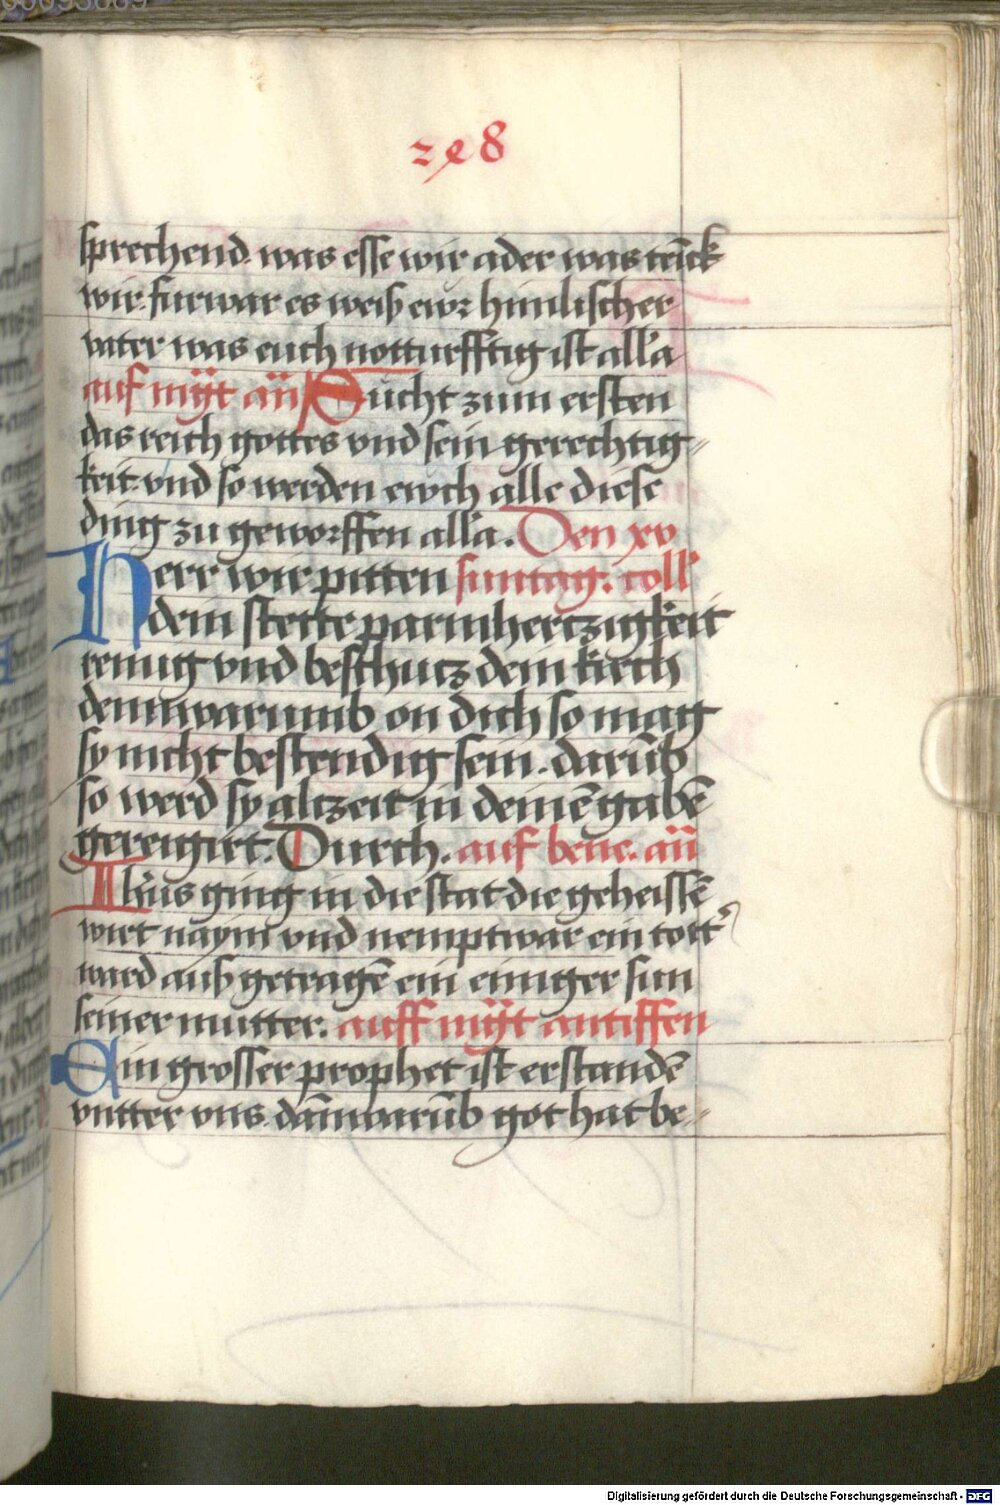 248
sprechend. was esse wir ader was trūck
wir. furwar es weiß ewr himlischer
vater was euch notturfftig ist all'a
auf mgt añ Sucht zum ersten
das reich gottes vnd sein gerechtig-
keit. vnd so werden ewch alle diese
ding zu geworffen all'a. Den xv
Herr wir pitten suntag. coll'
dein stette parmhertzigkeit
reinig vnd beschutz dein kirch
denn warumb on dich so mag
sy nicht bestendig sein. darūb
so werd sy altzeit in deinē gabē
gereigirt. Durch. auf bene. añ
Ihūs ging in die stat die geheissē
wirt naym vnd nempt war ein tott'
ward auß getragē ein einiger sun
seiner mutter. auff mgt antiffen
Ain grosser prophet ist erstandē
vntter vns. dāñ warūb got hat be-
Digitalisierung gefördert durch die Deutsche Forschungsgemeinschaft - DFG